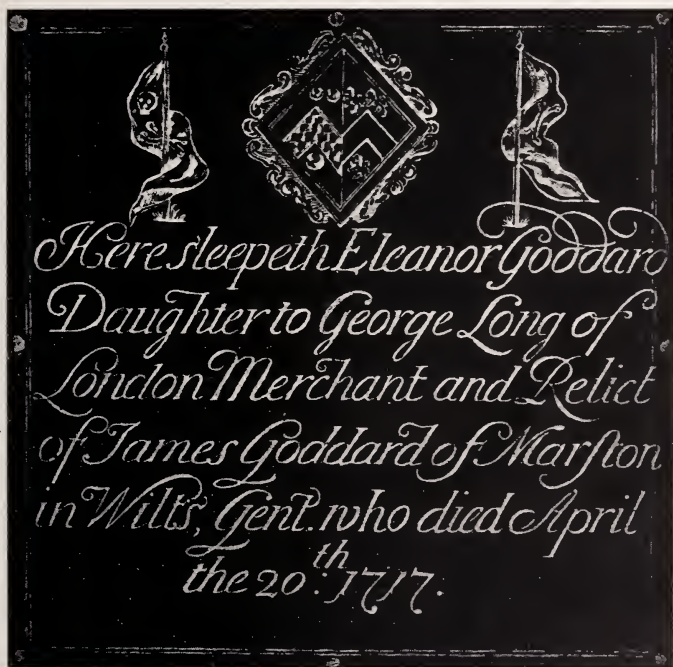 Here sleepeth Eleanor Goddard
Daughter to George Long of
London Merchant and Relict
of James Goddard of Marſton
in Wilts, Gent. who died April
the 20.th 1717.